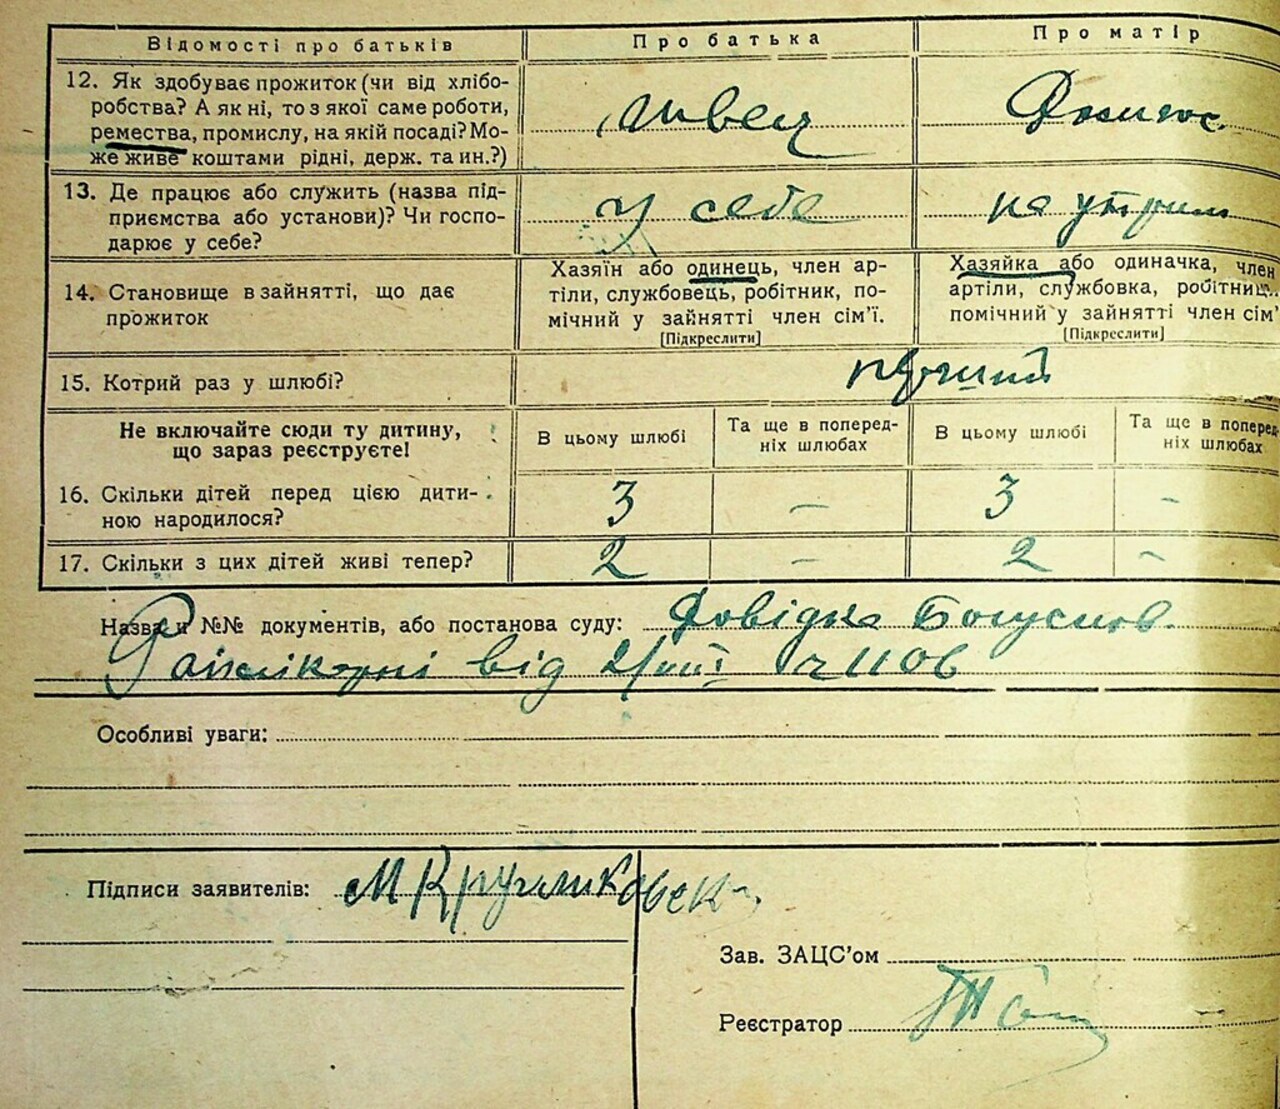 Відомості про батьків
Про батька
Про матір
12. Як здобуває прожиток (чи від хлібо-
робства? А як ні, то з якої саме роботи,
ремества, промислу, на якій посаді? Мо-
же живе коштами рідні, держ. та ин.?)
Швец
Домогос.
13. Де працює або служить (назва під-
приємства або установи)? Чи госпо-
дарює у себе?
у себе
на утрим
14. Становище в зайнятті, що дає
прожиток
Хазяїн або одинець, член ар-
тіли, службовець, робітник, по-
мічний у зайнятті член сім'ї.
[Підкреслити]
Хазяйка або одиначка, член
артіли, службовка, робітниц..
помічний у зайнятті член сім'
[Підкреслити]
15. Котрий раз у шлюбі?
перший
Не включайте сюди ту дитину,
що зараз реєструєте!
В цьому шлюбі
Та ще в поперед-
ніх шлюбах
В цьому шлюбі
Та ще в поперед-
ніх шлюбах
16. Скільки дітей перед цією дити-
ною народилося?
3
–
3
–
17. Скільки з цих дітей живі тепер?
2
–
2
–
Назва и №№ документів, або постанова суду: Довідка Богуслов.
Райлікарні від 2/VIII ч 1106
Особливі уваги:
Підписи заявителів: М
Зав. ЗАЦС'ом
Реєстратор